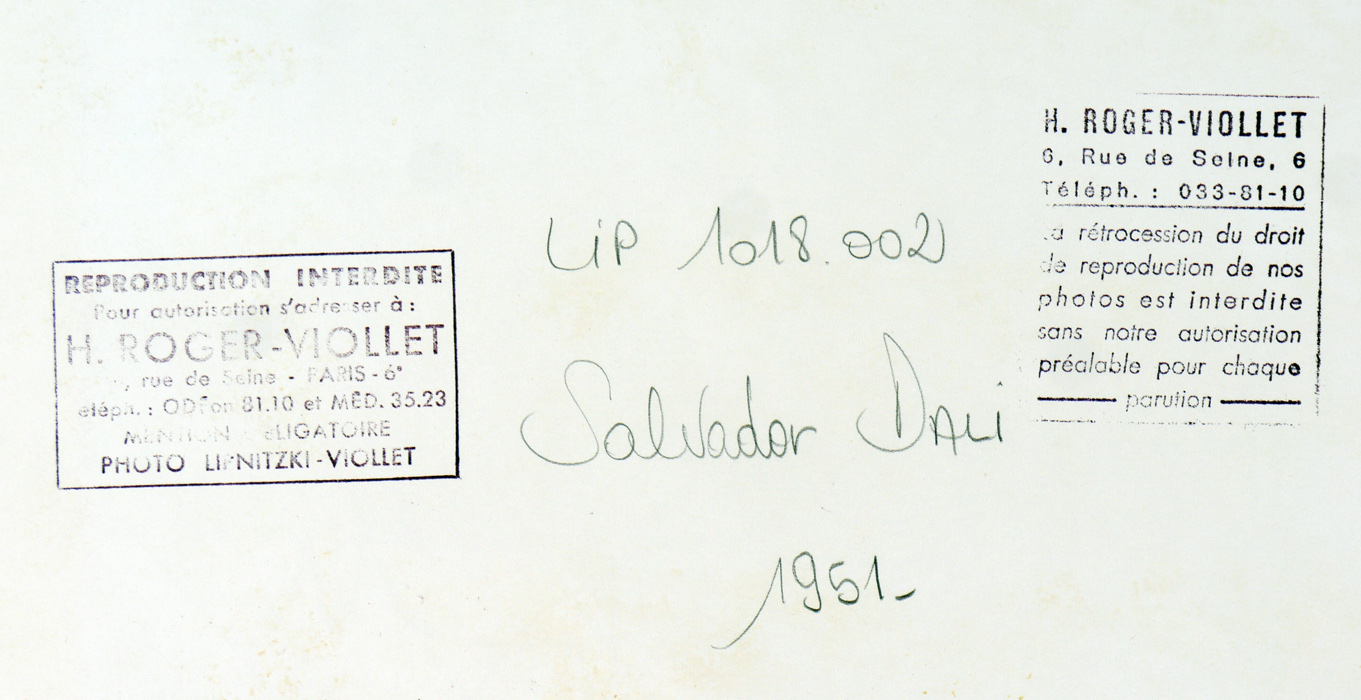 REPRODUCTION INTERDITE
Pour autorisation s'adresser à :
H. ROGER-VIOLLET
, rue de Seine - PARIS - 6°
éléph. : ODEon 81.10 et MÉD. 35.23
MENTION OBLIGATOIRE
PHOTO LIPNITZKI-VIOLLET
LiP 1018.002
Salvador DALi
1951-
H. ROGER-VIOLLET
6, Rue de Seine, 6
Téléph. : 033-81-10
La rétrocession du droit
de reproduction de nos
photos est interdite
sans notre autorisation
préalable pour chaque
parution